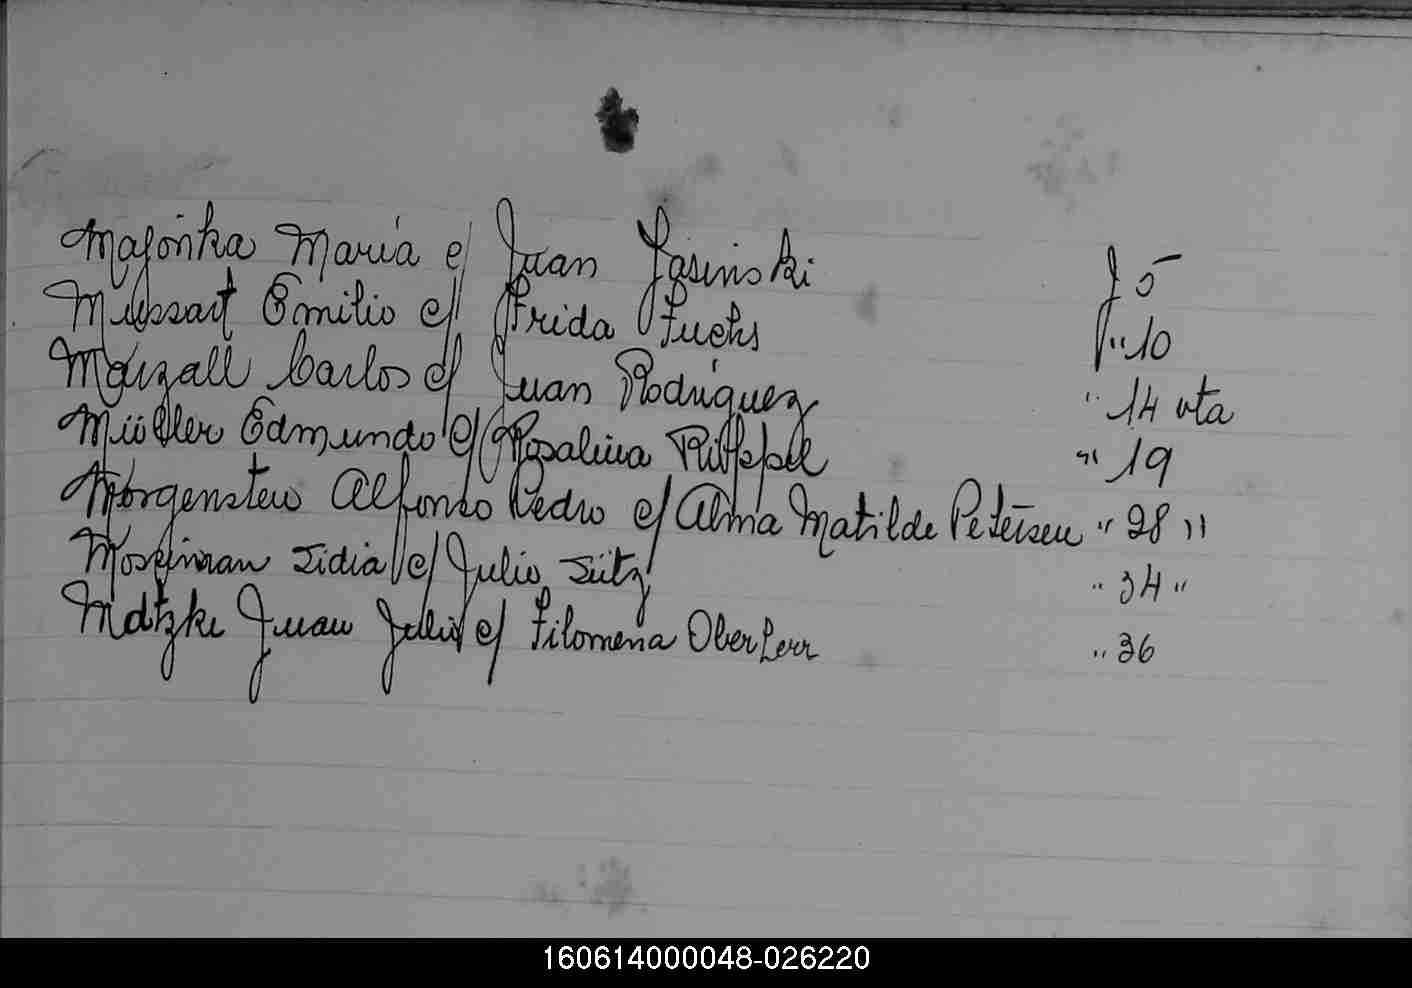 Majonka María c/ Juan Jasinski f 5
Mussart Emilio c/ Frida Fuchs " 10
Marzall Carlos c/ Juan Rodriguez " 14 vta
Müller Edmundo c/ Rosalina Ruppel " 19
Morgenstern Alfonso Pedro c/ Alma Matilde Petersen " 28 "
Lidia c/ Julio " 34 "
Matzke Juan Julio c/ Filomena Oberlerr " 36
160614000048-026220